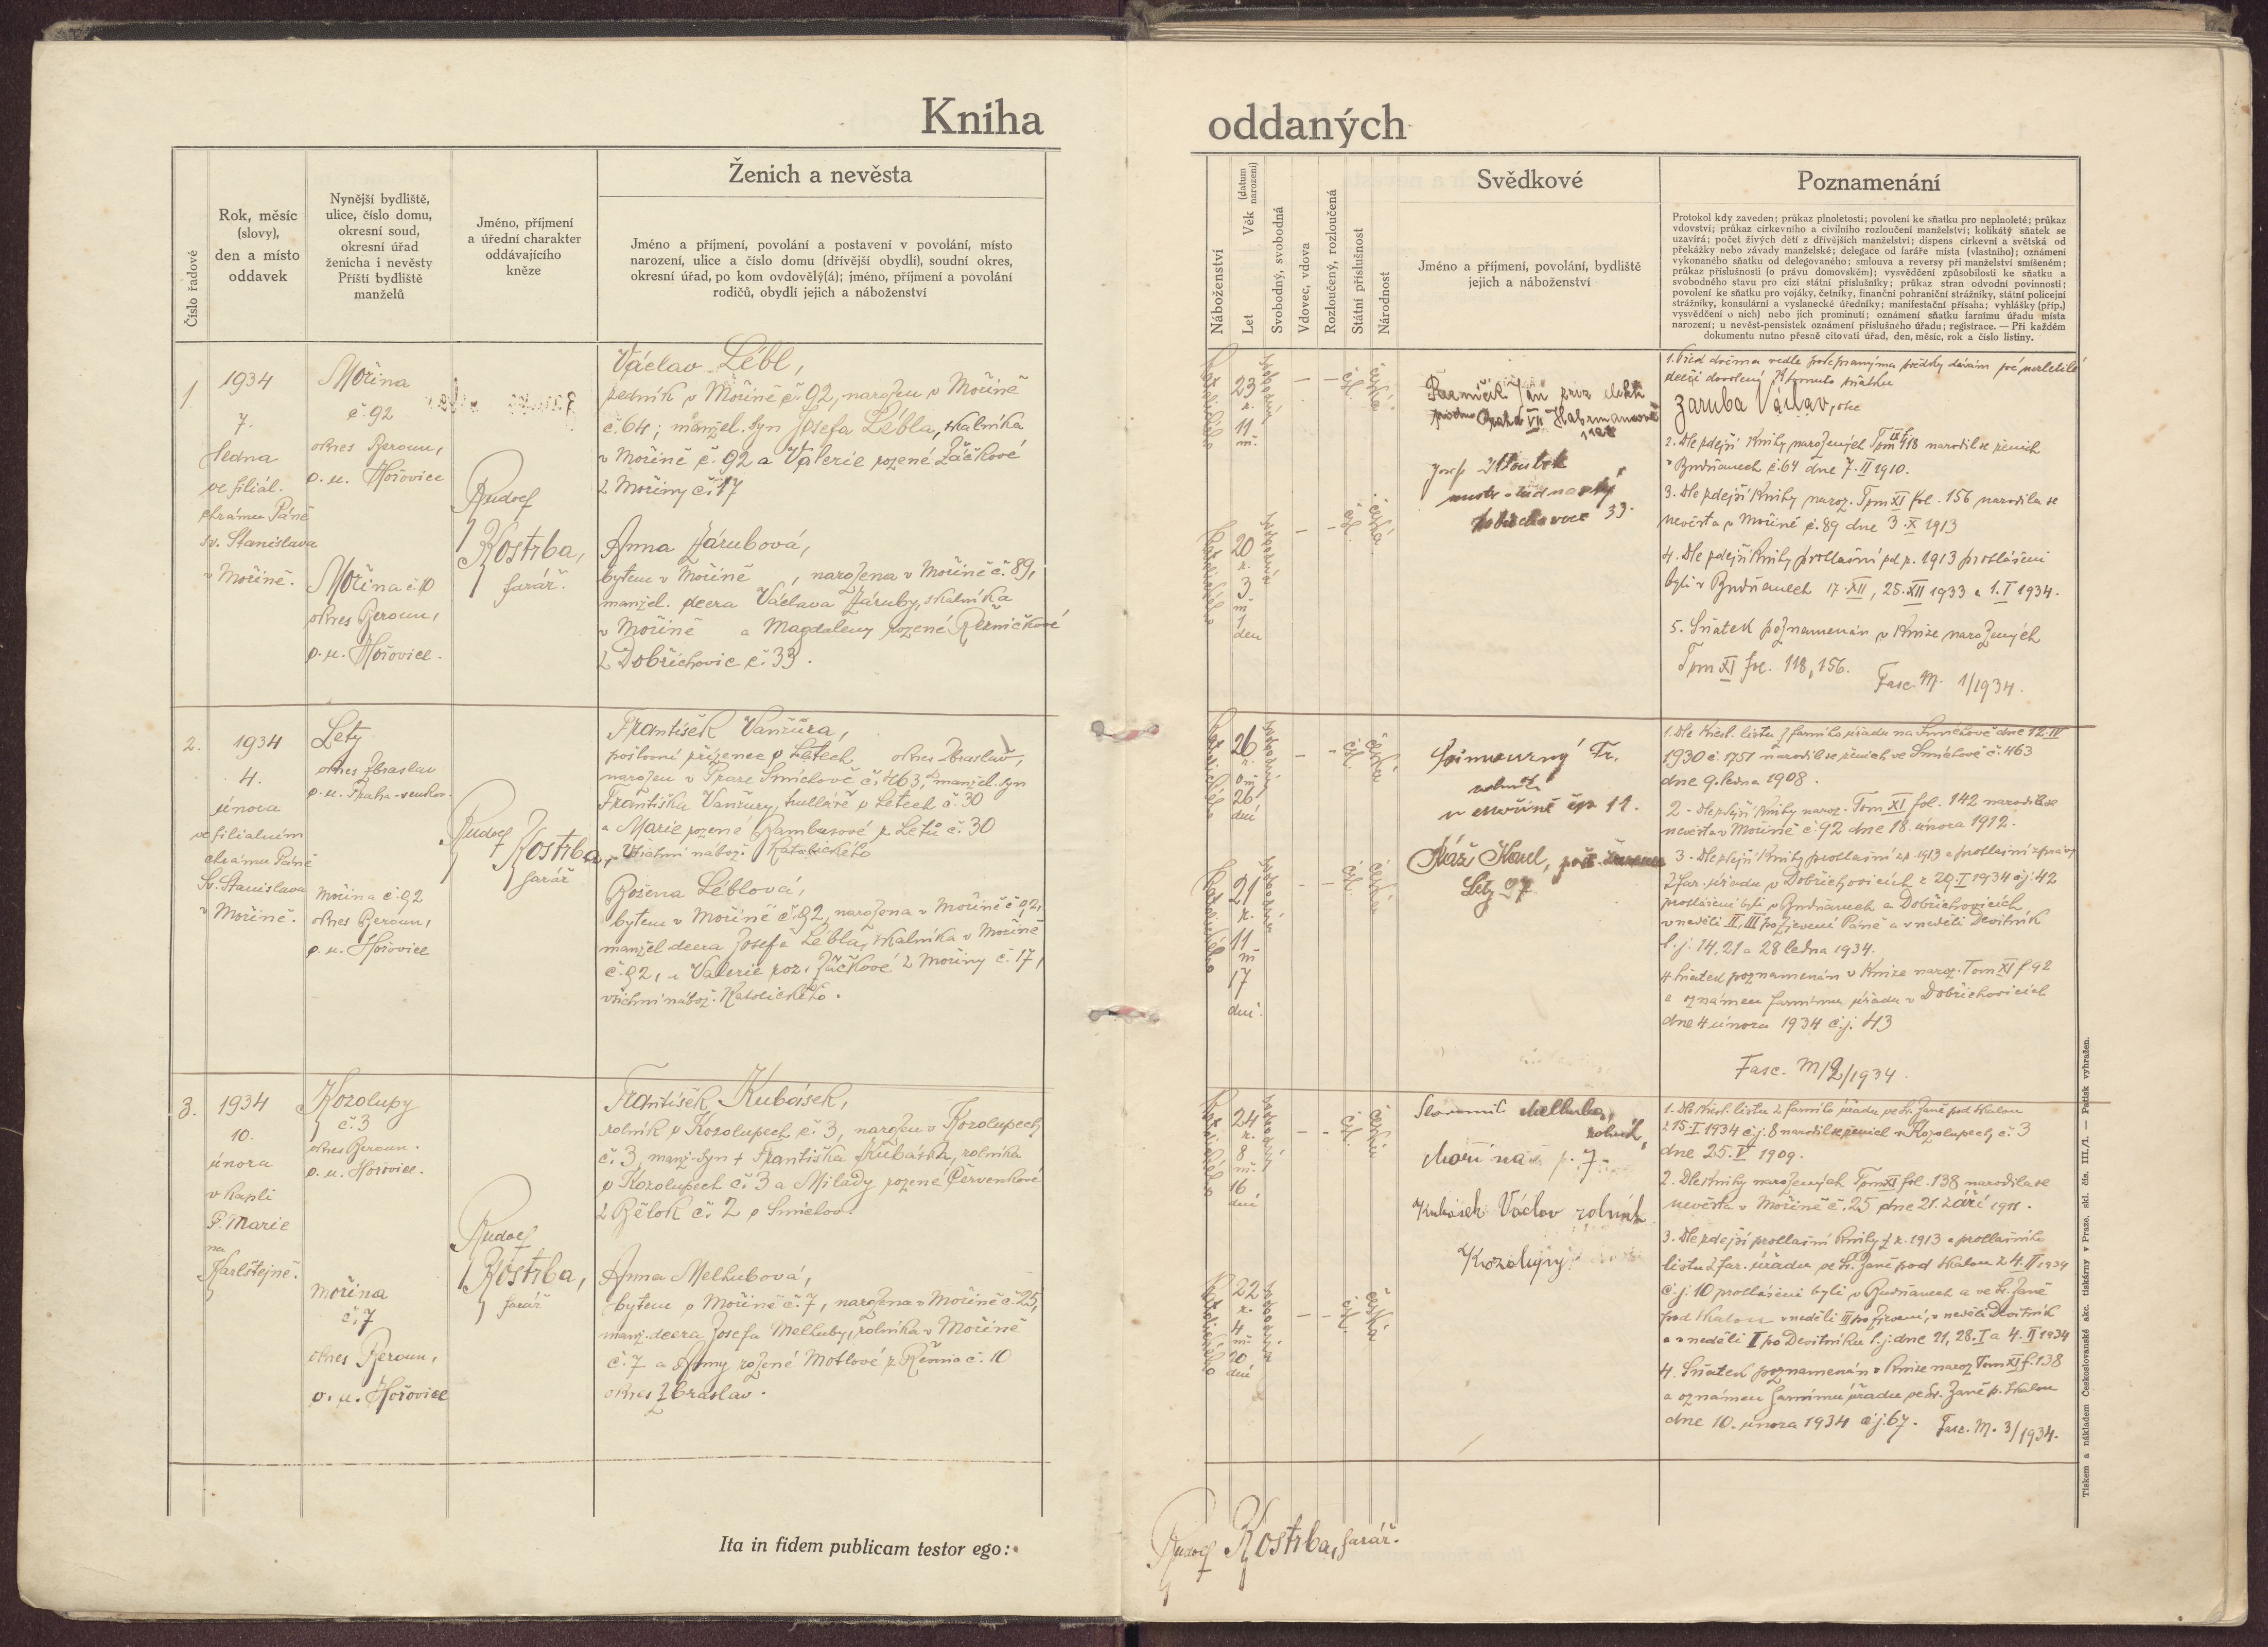 Kniha
oddaných
Číslo řadové
Rok, měsíc
(slovy),
den a místo
oddavek
Nynější bydliště,
ulice, číslo domu,
okresní soud,
okresní úřad
ženicha i nevěsty
Příští bydliště
manželů
Jméno, příjmení
a úřední charakter
oddávajícího
kněze
Ženich a nevěsta
Jméno a příjmení, povolání a postavení v povolání, místo
narození, ulice a číslo domu (dřívější obydlí), soudní okres,
okresní úřad, po kom ovdověl(a); jméno, příjmení a povolání
rodičů, obydlí jejich a náboženství
Náboženství
Let Věk (datum narození)
Svobodný, svobodná
Vdovec, vdova
Rozloučený, rozloučená
Státní příslušnost
Národnost
Svědkové
Jméno a příjmení, povolání, bydliště
jejich a náboženství
Poznamenání
Protokol kdy zaveden; průkaz plnoletosti; povolení ke sňatku pro neplnoleté; průkaz
vdovství; průkaz církevního a civilního rozloučení manželství; kolikátý sňatek se
uzavírá; počet živých dětí z dřívějších manželství; dispens církevní a světská od
překážky nebo závady manželské; delegace od faráře místa (vlastního); oznámení
vykonaného sňatku od delegovaného; smlouva a reversy při manželství smíšeném;
průkaz příslušnosti (o právu domovském); vysvědčení způsobilosti ke sňatku a
svobodného stavu pro cizí státní příslušníky; průkaz stran odvodní povinnosti;
povolení ke sňatku pro vojáky, četníky, finanční pohraniční strážníky, státní policejní
strážníky, konsulární a vyslanecké úředníky; manifestační přísaha; vyhlášky (příp.)
vysvědčení o nich) nebo jich prominutí; oznámení sňatku farnímu úřadu místa
narození; u nevěst-pensistek oznámení příslušného úřadu; registrace. — Při každém
dokumentu nutno přesně citovati úřad, den, měsíc, rok a číslo listiny.
1
1934
7.
ledna
ve filiál.
chrámu Páně
sv. Stanislava
v Mořině.
Mořina
č. 92
okres Beroun,
o. u. Hořovice
Mořina č. 10
okres Beroun,
o. u. Hořovice.
Rudolf
Kostrba,
farář.
Václav Lébl,
zedník v Mořině č. 92, narozen v Mořině
č. 64; manžel. syn Josefa Lébla, skalníka
v Mořině č. 92 a Valerie rozené Záčkové
z Mořiny č. 17
Anna Zárubová,
bytem v Mořině , narozena v Mořině č. 89,
manžel. dcera Václava Záruby, skalníka
v Mořině a Magdaleny rozené Řezníčkové
z Dobřichovic č. 33.
23
r.
11
m.
20
r.
3
m
1
den
Jan
Praha VII
Josef
33.
Záruba Václav, otec
2. Dle zdejší knihy narozených Tom IX f. 118 narodil se ženich
v Budňanech č. 64 dne 7. II 1910.
3. Dle zdejší knihy naroz. Tom XI fol. 156 narodila se
nevěsta v Mořině č. 89 dne 3. X 1913
4. Dle zdejší knihy prohlášní od r. 1913 prohlášeni
byli v Budňanech 17. XII, 25. XII 1933 a 1. I 1934.
5. Sňatek poznamenán v knize narozených
Tom XI fol. 118, 156.
Fasc. M. 1/1934.
2.
1934
4.
února
ve filialním
chrámu Páně
Sv. Stanislava
v Mořině.
Lety
okres Zbraslav
o. u. Praha-venkov.
Mořina č. 92
okres Beroun,
o. u. Hořovice
Rudolf
Kostrba,
farář
František Vančura,
poštovní zřízenec v Letech okres Zbraslav,
narozen v Praze Smíchově č. 463, manžel. syn
Františka Vančury, truhláře v Letech č. 30
a Marie rozené Bambasové z Letů č. 30
Všichni nábož. katolického
Božena Léblová,
bytem v Mořině č. 92, narozena v Mořině č. 92,
manžel dcera Josefa Lébla, skalníka v Mořině
č. 92, a Valerie roz. Záčkové z Mořiny č. 17,
všichni nábož. katolického.
26
r.
0 m
26
dní
21
r.
11
m
17
dní.
Fr.
rolník
v Mořině čp 12.
Karel,
Lety 27
1. Dle křest. listu z farního úřadu na Smíchově dne 12. IV
1930 č. 1751 narodil se ženich ve Smíchově č. 463
dne 9. ledna 1908.
2 - dle zdejší knihy naroz. Tom XI fol. 142 narodila se
nevěsta v Mořině č. 92 dne 18. února 1912.
3. - Dle zdejší knihy prohlášní z r. 1913 a prohlášní zprávy
z far. úřadu v Dobřichovicích z 29. I 1934 čj. 42
prohlášeni byli v Budňanech a Dobřichovicích
v neděli II, III po Zjevení Páně a v neděli Devítník
t. j. 14, 21 a 28 ledna 1934.
4 Sňatek poznamenán v knize naroz. Tom XI f. 92
a oznámen farnímu úřadu v Dobřichovicích
dne 4 února 1934 č. j. 43
Fasc. M/2/1934.
3.
1934
10.
února
v kapli
P. Marie
na
Karlštejně.
Kozolupy
č. 3
okres Beroun.
o. u. Hořovice.
Mořina
č. 7
okres Beroun,
o. u. Hořovice
Rudolf
Kostrba,
farář
František Kubásek,
rolník v Kozolupech č. 3, narozen v Kozolupech
č. 3, manž. syn + Františka Kubáska, rolníka
v Kozolupech č. 3 a Milady rozené Červenkové
z Bělok č. 2 o Smíchov.
Anna Melhubová,
bytem v Mořině č. 7, narozena v Mořině č. 25,
manž. dcera Josefa Melhuby, rolníka v Mořině
č. 7 a Anny rozené Motlové z Řevnic č. 10
okres Zbraslav.
24
r.
8
m.
16
dní
22
r.
4
m.
20
dní
Slavomil Melhuba,
rolník,
Mořina č. 7
Kubásek Václav rolník
Kozolupy
1. Dle křest. listu z farního úřadu ve Sv. Janě pod Skalou
z 15. I 1934 č. j. 8 narodil se ženich v Kozolupech č. 3
dne 25. V 1909.
2. Dle knihy narozených Tom XI fol. 138 narodila se
nevěsta v Mořině č. 25 dne 21. září 1911.
3. Dle zdejší prohlašní knihy z r. 1913 a prohlašního
listu z far. úřadu ve Sv. Janě pod Skalou z 4. II 1934
č. j. 10 prohlášeni byli v Budňanech a ve Sv. Janě
pod Skalou v neděli III po Zjevení, v neděli Devítník
a v neděli I po Devítníku t. j. dne 21, 28. I a 4. II 1934
4. Sňatek poznamenán v knize naroz Tom XI f. 138
a oznámen farnímu úřadu ve Sv. Janě p. Skalou
dne 10. února 1934 č. j. 67. Fasc. M. 3/1934.
Ita in fidem publicam testor ego:
Rudolf Kostrba, farář.
Tiskem a nákladem Československé akc. tiskárny v Praze, skl. čís. III./1. — Patisk vyhražen.